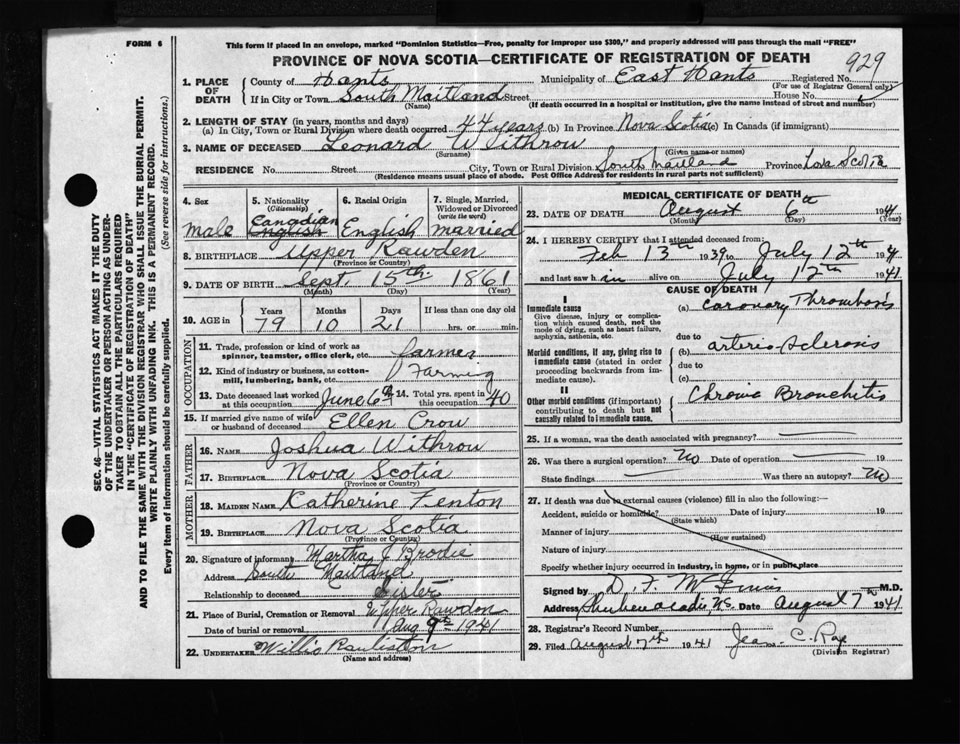 FORM 6
This form if placed in an envelope, marked "Dominion Statistics—Free, penalty for improper use $300," and properly addressed will pass through the mail "FREE"
PROVINCE OF NOVA SCOTIA—CERTIFICATE OF REGISTRATION OF DEATH
929
1. PLACE OF DEATH
County of Hants Municipality of East Hants Registered No.
(For use of Registrar General only)
If in City or Town South Maitland Street House No.
(Name) (If death occurred in a hospital or institution, give the name instead of street and number)
2. LENGTH OF STAY (in years, months and days)
(a) In City, Town or Rural Division where death occurred 44 years (b) In Province Nova Scotia (c) In Canada (if immigrant)
3. NAME OF DECEASED Leonard Withrow
(Surname) (Given name or names)
RESIDENCE No. Street City, Town or Rural Division South Maitland Province Nova Scotia
(Residence means usual place of abode. Post Office Address for residents in rural parts not sufficient)
4. Sex 5. Nationality (Citizenship) 6. Racial Origin 7. Single, Married, Widowed or Divorced (write the word)
Male Canadian English English married
8. BIRTHPLACE Upper Rawden
(Province or Country)
9. DATE OF BIRTH Sept. 15th 1861
(Month) (Day) (Year)
10. AGE in Years Months Days If less than one day old
79 10 21 hrs. or min.
OCCUPATION
11. Trade, profession or kind of work as spinner, teamster, office clerk, etc. farmer
12. Kind of industry or business, as cotton-mill, lumbering, bank, etc. Farming
13. Date deceased last worked at this occupation June 6th 14. Total yrs. spent in this occupation 40
15. If married give name of wife or husband of deceased Ellen Crow
FATHER
16. NAME Joshua Withrow
17. BIRTHPLACE Nova Scotia
(Province or Country)
MOTHER
18. MAIDEN NAME Katherine Fenton
19. BIRTHPLACE Nova Scotia
(Province or Country)
20. Signature of informant Martha J Brodie
Address South Maitland
Relationship to deceased Sister
21. Place of Burial, Cremation or Removal Upper Rawdon
Date of burial or removal Aug 9th 1941
22. UNDERTAKER Willis
(Name and address)
MEDICAL CERTIFICATE OF DEATH
23. DATE OF DEATH August 6th 1941
(Month) (Day) (Year)
24. I HEREBY CERTIFY that I attended deceased from:
Feb 13th 1939 to July 12th 1941
and last saw him alive on July 12th 1941
CAUSE OF DEATH
I
Immediate cause (a) Coronary Thrombosis
Give disease, injury or complication which caused death, not the mode of dying, such as heart failure, asphyxia, asthenia, etc.
due to
Morbid conditions, if any, giving rise to immediate cause (stated in order proceeding backwards from immediate cause).
(b) arterio sclerosis
due to
(c)
II
Other morbid conditions (if important) contributing to death but not causally related to immediate cause.
Chronic Bronchitis
25. If a woman, was the death associated with pregnancy?
26. Was there a surgical operation? No Date of operation 19
State findings Was there an autopsy? No
27. If death was due to external causes (violence) fill in also the following:—
Accident, suicide or homicide? Date of injury 19
(State which)
Manner of injury
(How sustained)
Nature of injury
Specify whether injury occurred in industry, in home, or in public place
Signed by D. F. M.D.
Address Shubenacadie, N.S. Date August 7th 1941
28. Registrar's Record Number
29. Filed August 7th 1941 Jean C. Roy
(Division Registrar)
SEC. 46—VITAL STATISTICS ACT MAKES IT THE DUTY
OF THE UNDERTAKER OR PERSON ACTING AS UNDER-
TAKER TO OBTAIN ALL THE PARTICULARS REQUIRED
IN THE "CERTIFICATE OF REGISTRATION OF DEATH"
AND TO FILE THE SAME WITH THE DIVISION REGISTRAR WHO SHALL ISSUE THE BURIAL PERMIT.
WRITE PLAINLY WITH UNFADING INK. THIS IS A PERMANENT RECORD.
Every item of information should be carefully supplied. (See reverse side for instructions.)